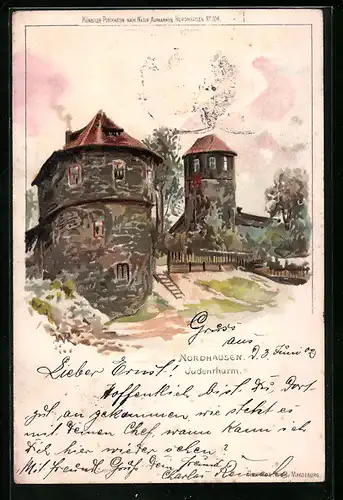 KÜNSTLER-POSTKARTEN NACH NATUR-AUFNAHMEN. NORDHAUSEN N° 104.
Gruss
aus
NORDHAUSEN. d. 3 Juni 02
Judenthurm.
Lieber Ernst!
Hoffentlich bist Du, dort
gut, an gekommen, wie steht es
mit Deinem Chef, wann kann ich
Dich hier wieder sehen?
Mit Freundl. Gruß Dein Freund
Charles
MAGDEBURG